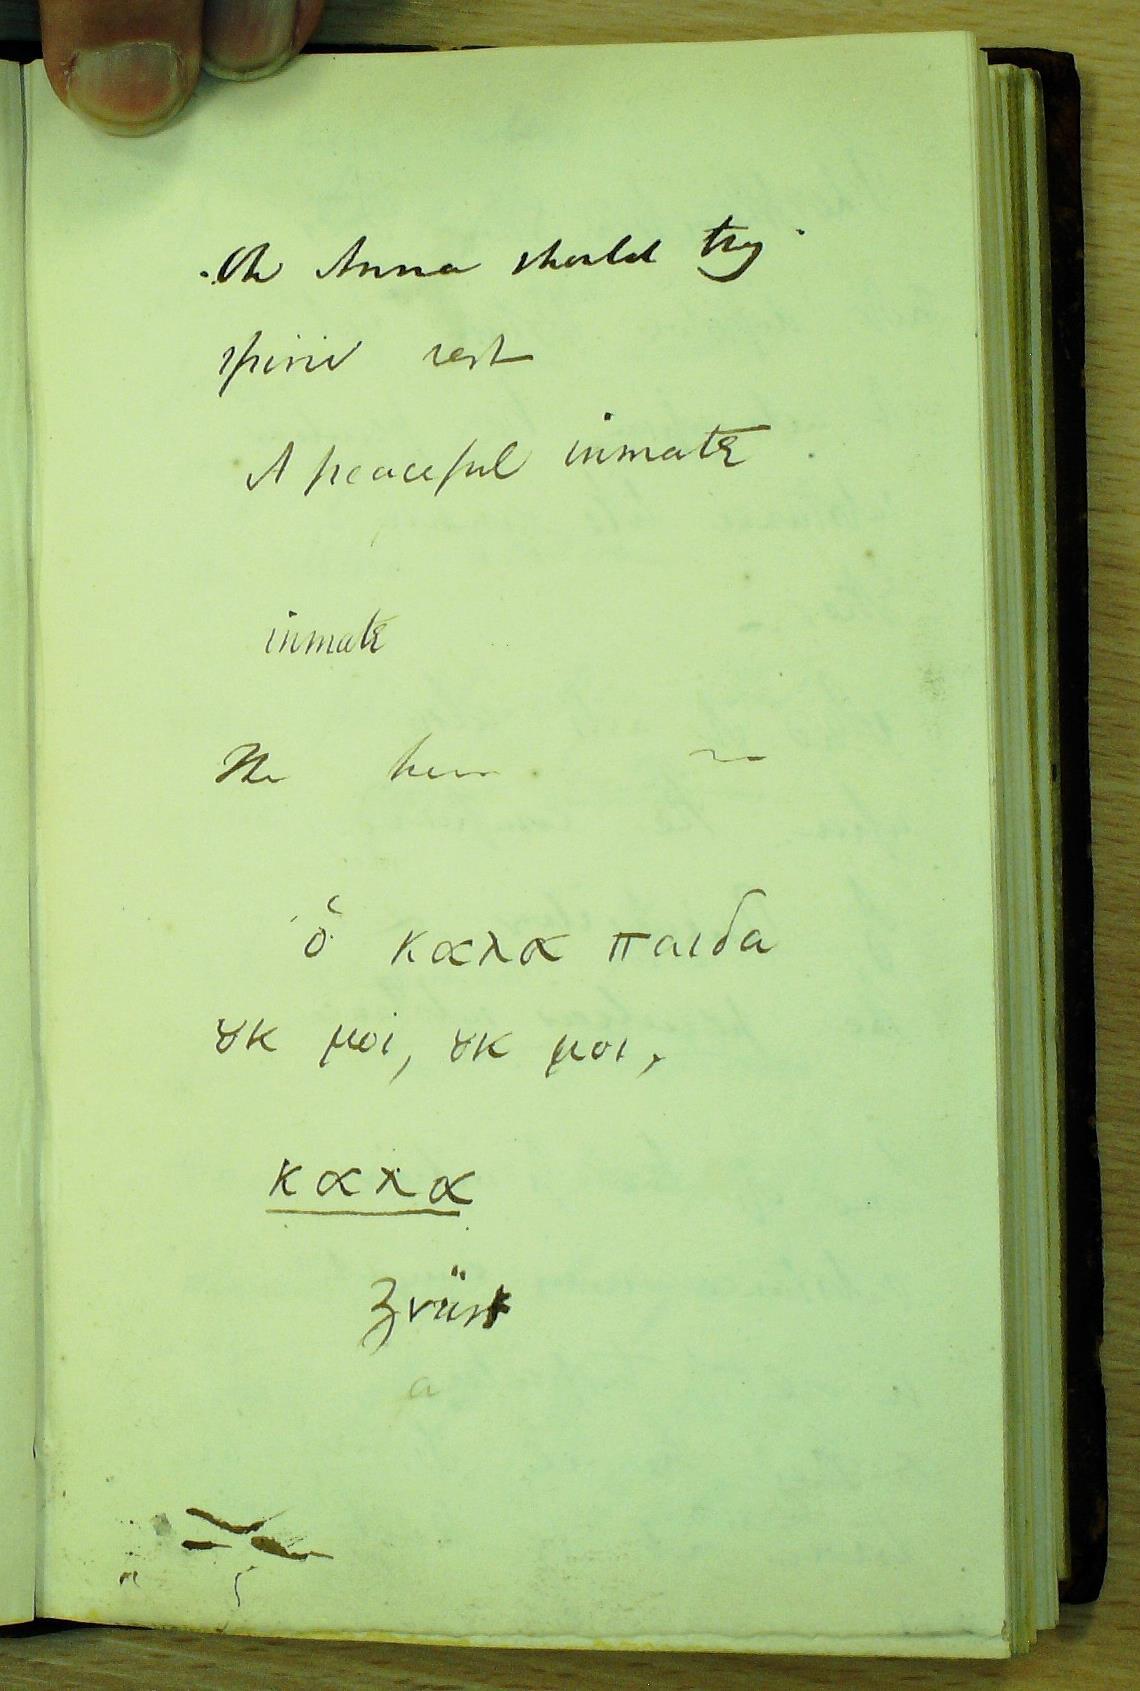 Oh Anna should thy
spirit rest
A peaceful inmate
inmate
The
ὅ καλα παιδα
ȣκ μοι, ȣκ μοι,
καλα
a